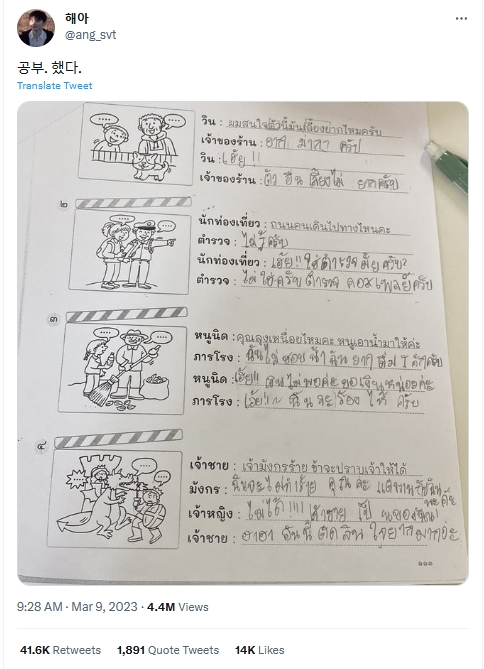 해아
@ang_svt
공부. 했다.
Translate Tweet
วิน : ผมสนใจตัวนี้มันเลี้ยงยากไหมครับ
เจ้าของร้าน : ยาก มากๆ ครับ
วิน : เฮ้ย !!
เจ้าของร้าน : ตัว อื่น เลี้ยงไม่ ยากครับ
๒
นักท่องเที่ยว : ถนนคนเดินไปทางไหนคะ
ตำรวจ : ไม่รู้ครับ
นักท่องเที่ยว : เฮ้ย!! ใช่ตำรวจ มั้ย ครับ?
ตำรวจ : ไม่ ใช่ครับ ตำรวจ คอมเพลย์ครับ
๓
หนูนิด : คุณลุงเหนื่อยไหมคะ หนูเอาน้ำมาให้ค่ะ
ภารโรง : ฉันไม่ ชอบ น้ำ ฉัน
หนูนิด : เฮ้ย!!! ไม่พอค่ะ
ภารโรง : เฮ้ย!!~ ฉัน จะ ร้อง ไห้ ครับ
๔
เจ้าชาย : เจ้ามังกรร้าย ข้าจะปราบเจ้าให้ได้
มังกร : ฉันจะไม่ทำร้าย คุณ
เจ้าหญิง : ไม่ได้!!!! เจ้าชาย เป็น ของฉัน!
เจ้าชาย : อาฮา อันนี้ ตัดสิน ใจยากมากค่ะ
๑๑๑
9:28 AM · Mar 9, 2023 · 4.4M Views
41.6K Retweets 1,891 Quote Tweets 14K Likes